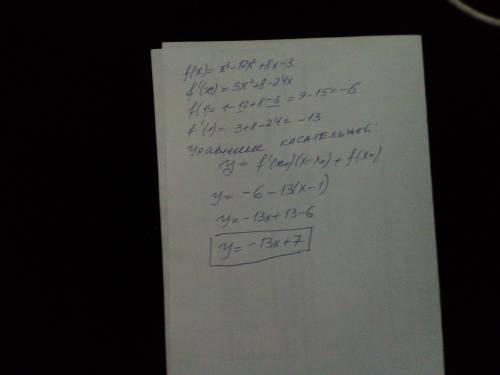 f(x)= x³-12x²+8x-3
f'(x)= 3x²+8-24x
f(1)= 1-12+8-3 = 9-15=-6
f'(1)= 3+8-24= -13
Уравнение касательной:
y= f'(x₀)(x-x₀)+f(x₀)
y= -6-13(x-1)
y= -13x+13-6
y= -13x+7